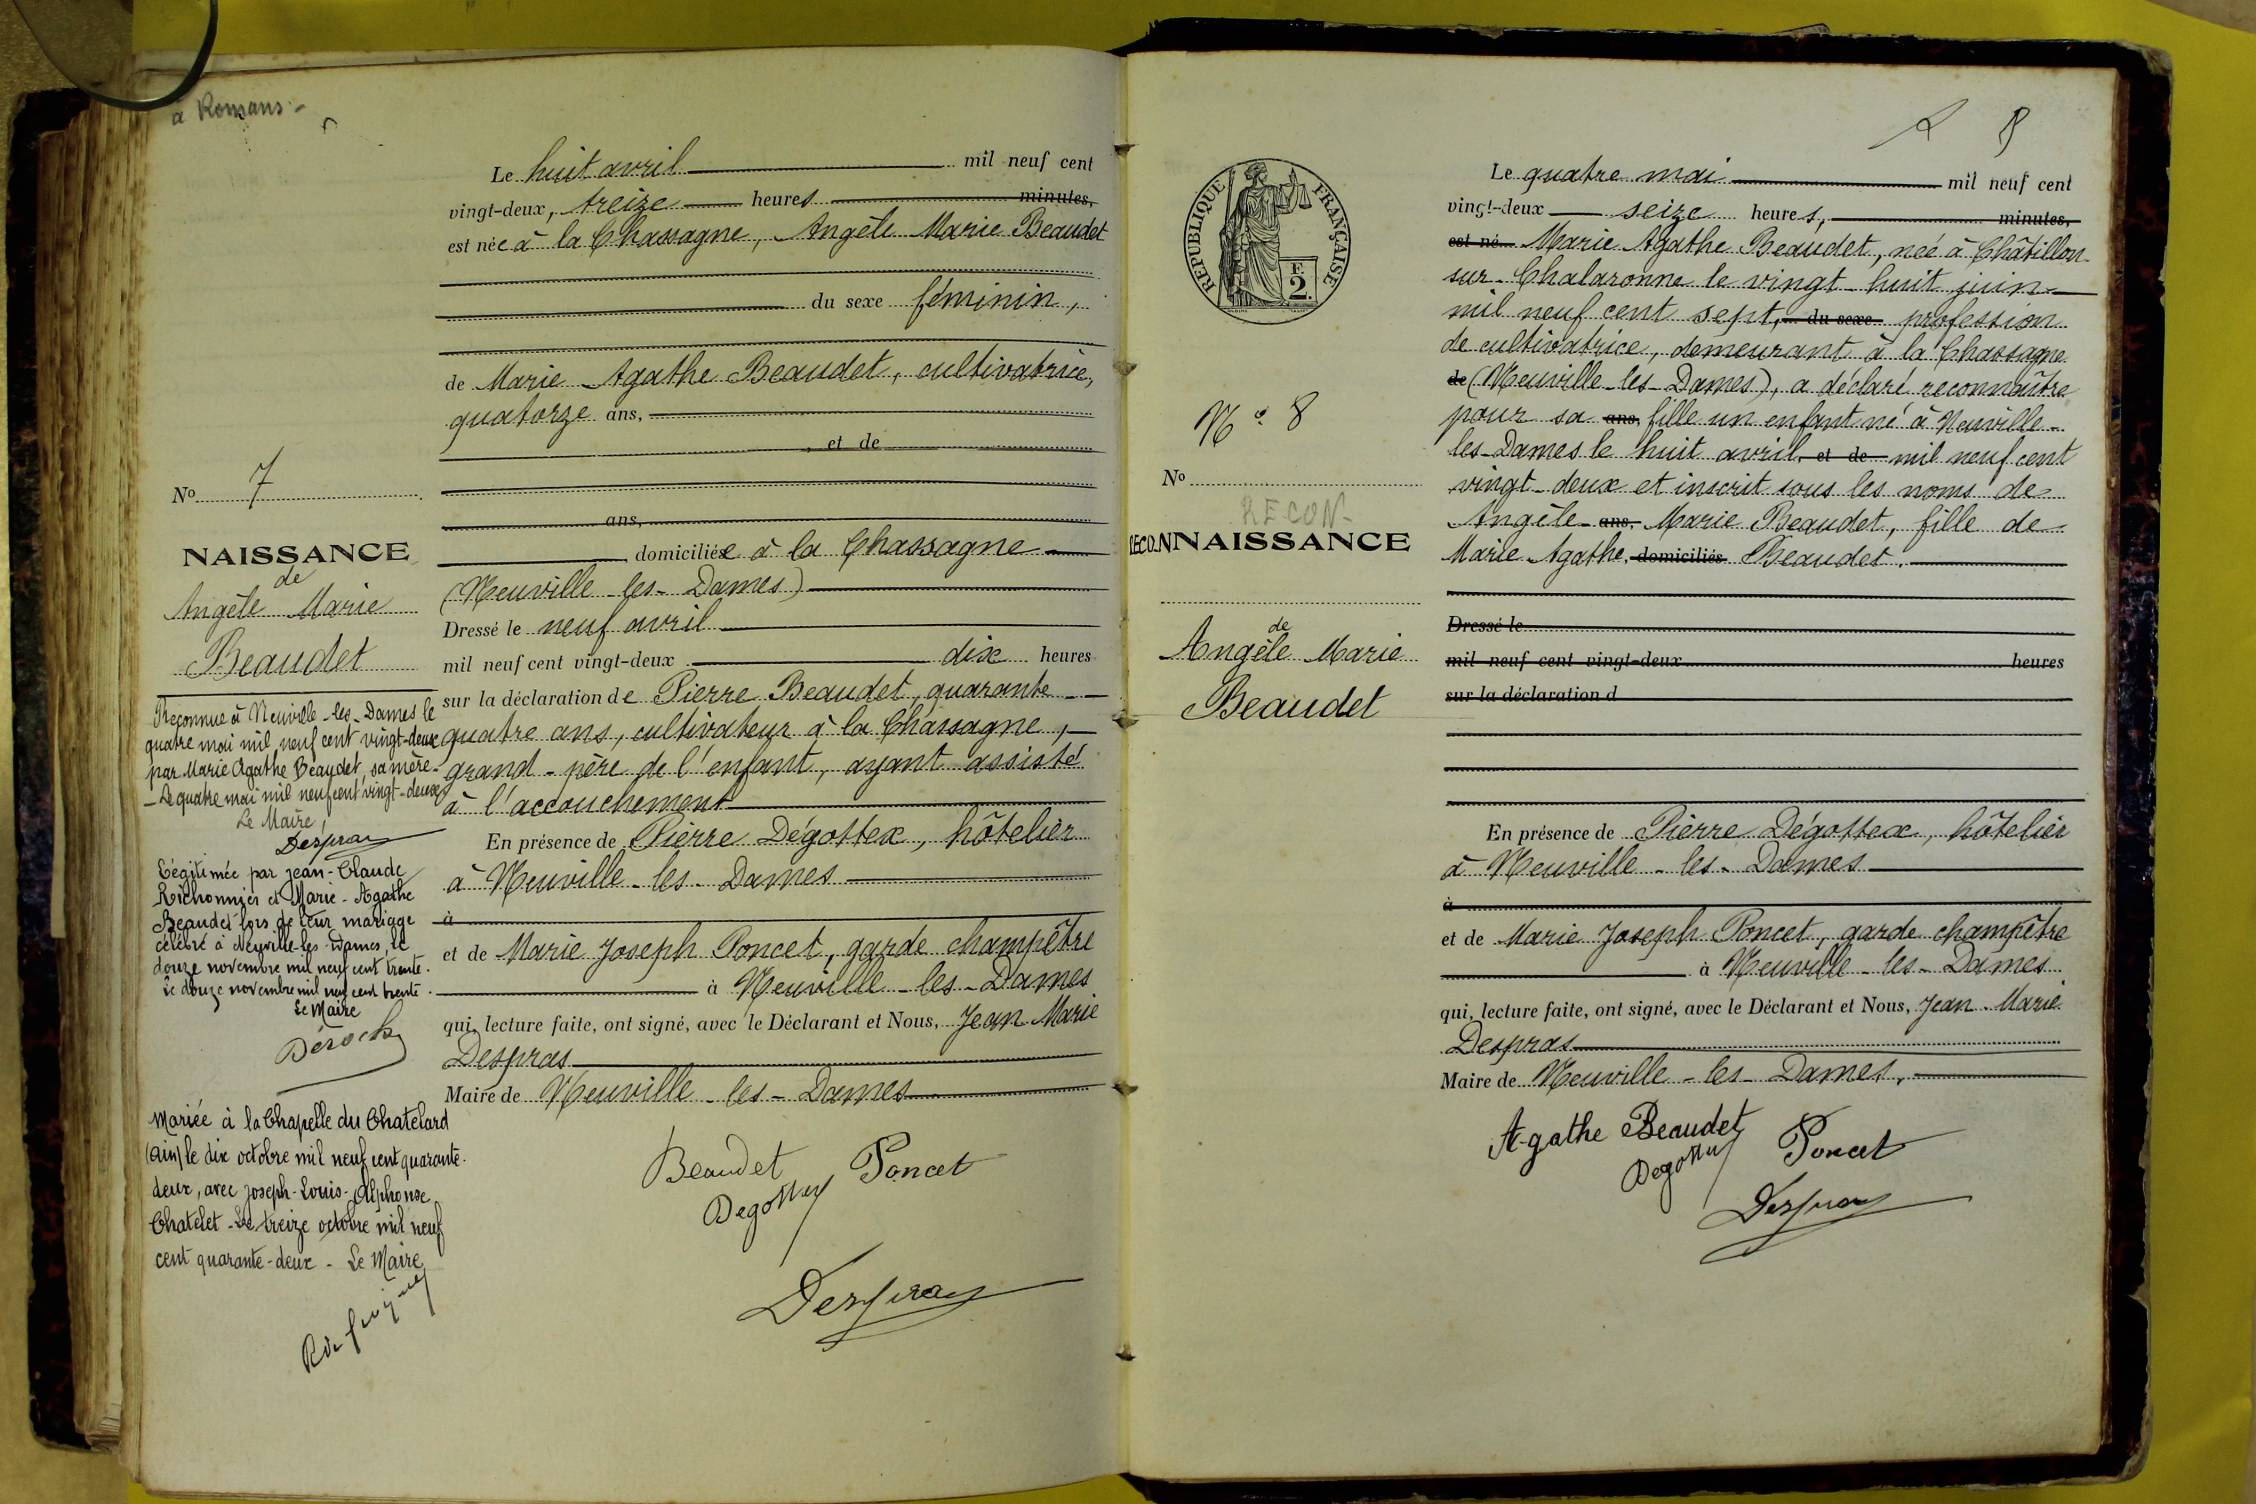 à Romans -
Le huit avril mil neuf cent
vingt-deux, treize heures minutes,
est née à la Chassagne, Angèle Marie Beaudet
du sexe féminin,
de Marie Agathe Beaudet, cultivatrice,
quatorze ans,
, et de
ans,
domiciliée à la Chassagne
(Neuville-les-Dames)
Dressé le neuf avril
mil neuf cent vingt-deux dix heures
sur la déclaration de Pierre Beaudet, quarante-
quatre ans, cultivateur à la Chassagne,
grand-père de l'enfant, ayant assisté
à l'accouchement
En présence de Pierre Dégottex, hôtelier
à Neuville-les-Dames
à
et de Marie Joseph Poncet, garde champêtre
à Neuville-les-Dames
qui, lecture faite, ont signé, avec le Déclarant et Nous, Jean Marie
Despras
Maire de Neuville-les-Dames
Beaudet Poncet
Degottex
Despras
No 7
NAISSANCE
de
Angèle Marie
Beaudet
Reconnue à Neuville-les-Dames le
quatre mai mil neuf cent vingt-deux
par Marie Agathe Beaudet, sa mère-
- Le quatre mai mil neuf cent vingt-deux
Le Maire,
Despras
Légitimée par Jean-Claude
Richonnier et Marie-Agathe
Beaudet lors de leur mariage
célébré à Neuville-les-Dames, le
douze novembre mil neuf cent trente.
Le douze novembre mil neuf cent trente.
Le Maire
Mariée à la Chapelle du Chatelard
(Ain) le dix octobre mil neuf cent quarante-
deux, avec Joseph-Louis-Alphonse
Chatelet - Le treize octobre mil neuf
cent quarante-deux - Le Maire
8
RÉPUBLIQUE FRANÇAISE
F.
2
N° 8
No
RECON-
RECONNAISSANCE
de
Angèle Marie
Beaudet
Le quatre mai mil neuf cent
vingt-deux seize heures, minutes,
est né Marie Agathe Beaudet, née à Châtillon-
sur-Chalaronne le vingt-huit juin
mil neuf cent sept, du sexe profession
de cultivatrice, demeurant à la Chassagne
de (Neuville-les-Dames), a déclaré reconnaître
pour sa ans, fille un enfant né à Neuville-
les-Dames le huit avril, et de mil neuf cent
vingt-deux et inscrit sous les noms de
Angèle ans, Marie Beaudet, fille de
Marie Agathe, domiciliés Beaudet.
Dressé le
mil neuf cent vingt-deux heures
sur la déclaration d
En présence de Pierre Dégottex, hôtelier
à Neuville-les-Dames
à
et de Marie Joseph Poncet, garde champêtre
à Neuville-les-Dames
qui, lecture faite, ont signé, avec le Déclarant et Nous, Jean-Marie
Despras
Maire de Neuville-les-Dames,
Agathe Beaudet
Degottex Poncet
Despras